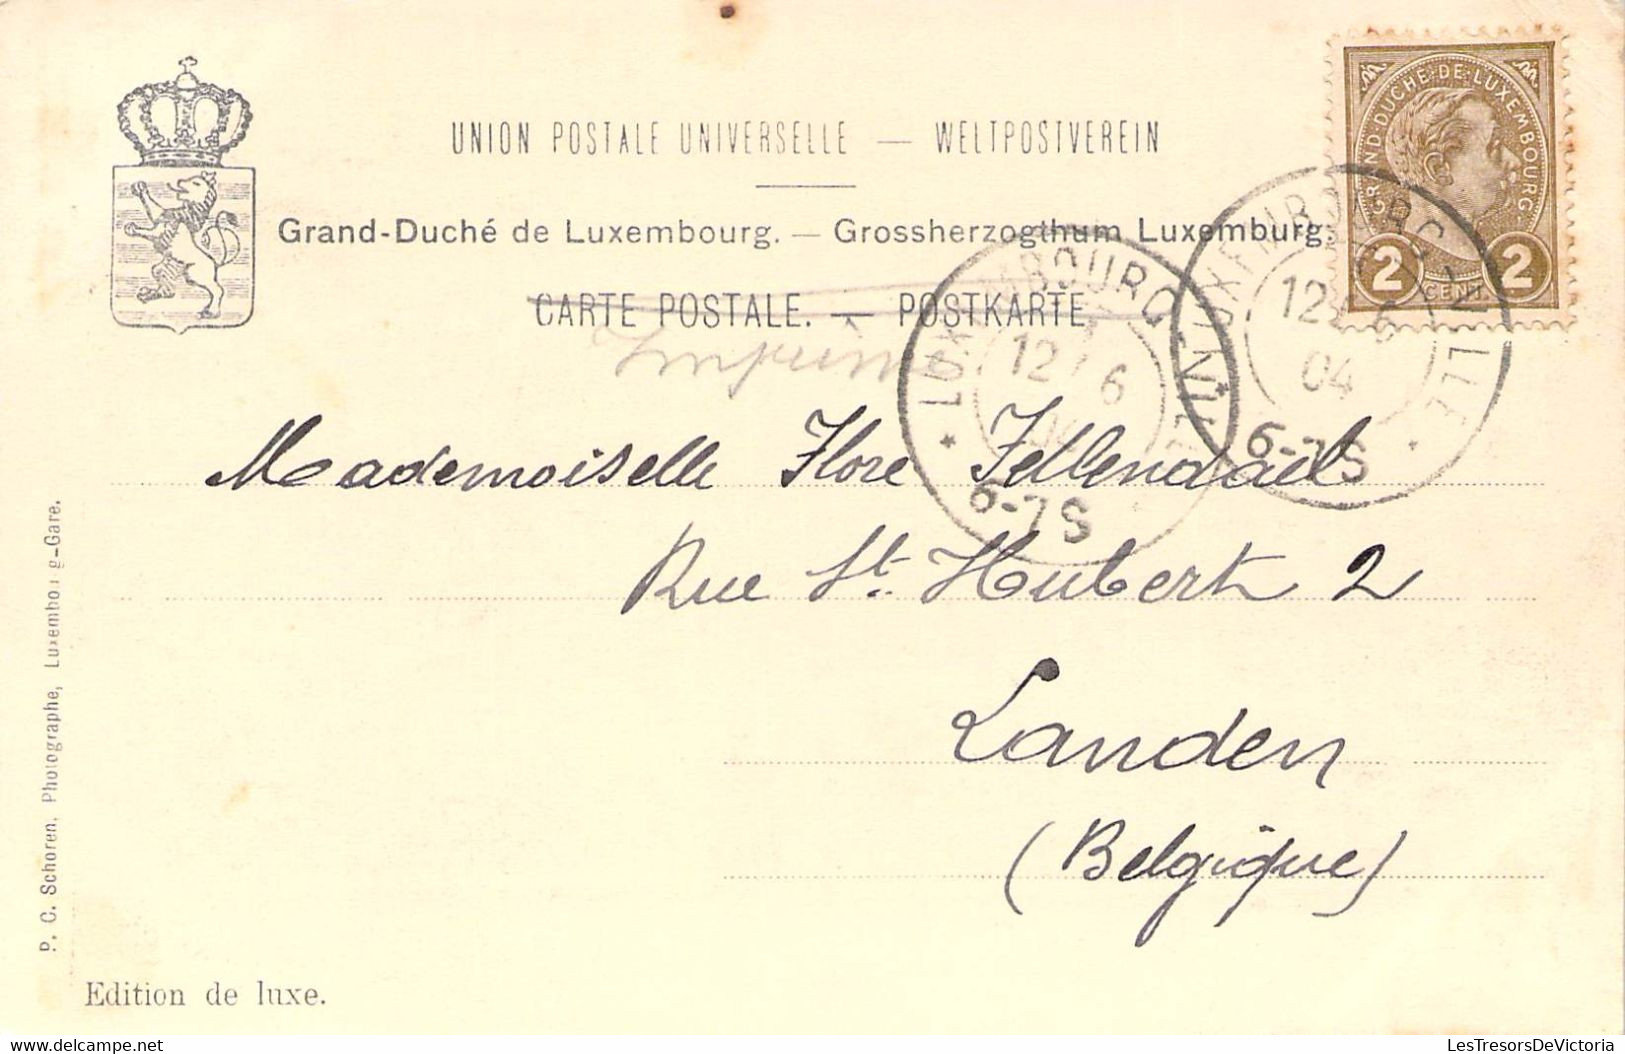 UNION POSTALE UNIVERSELLE — WELTPOSTVEREIN
Grand-Duché de Luxembourg. — Grossherzogthum Luxemburg.
CARTE POSTALE. — POSTKARTE
Imprimé
GRAND-DUCHÉ-DE-LUXEMBOURG-
2 CENT. 2
LUXEMBOURG-VILLE
12 6
04
6-7 S
LUXEMBOURG-VILLE
12 6
04
6-7 S
Mademoiselle Flore
Rue St. Hubert 2
Landen
(Belgique)
P. C. Schoren, Photographe, Luxembourg-Gare.
Edition de luxe.
delcampe.net
LesTresorsDeVictoria